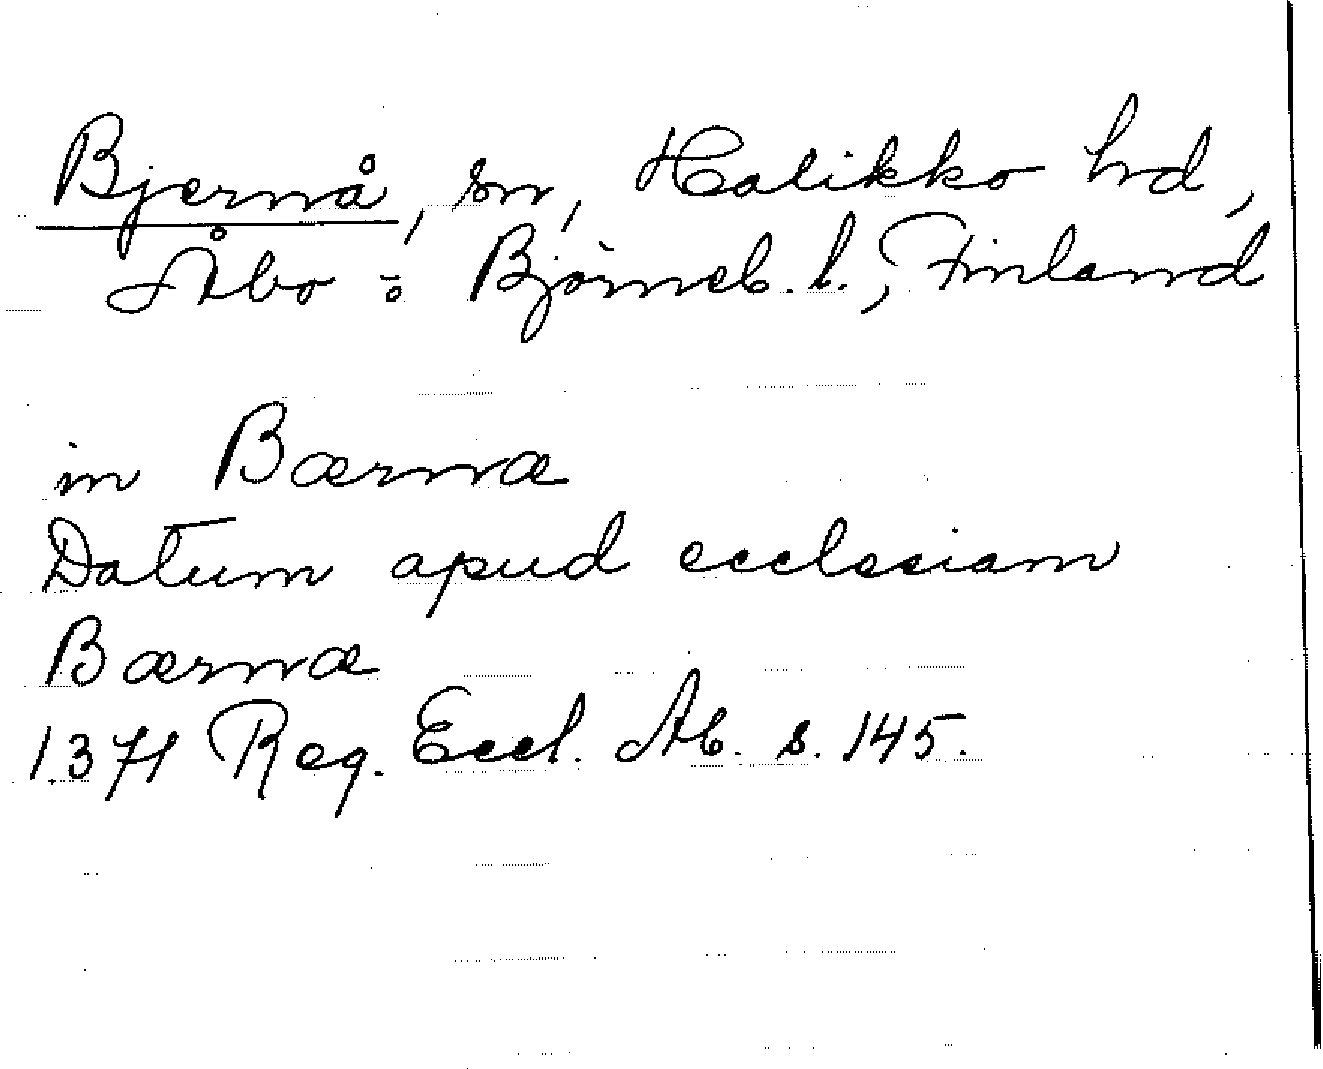 Bjernå, sn, Halikko hd,
Åbo o Björneb. l., Finland
in Bærnæ
Datum apud ecclesiam
Bærnæ
1371 Reg. Eccl. Ab. s. 145.